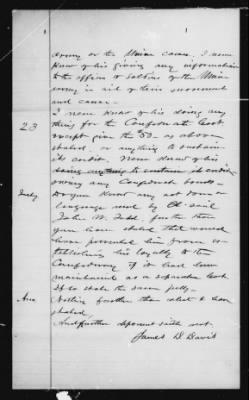 Army or the Union cause. I never
knew of his giving any information
to the officers or soldiers of the Union
army in aid of their movement
and cause -
I never knew of his doing any
23 thing for the Confederate Govt
except give the $50 as above
stated. or anything to sustain
its credit. Never knew of his
doing anything to sustain its credit
owning any Confederate bonds -
2nedly Do you know any act done or
language used by
John W. Todd, further than
you have stated that would
have prevented him from es-
tablishing his loyalty to the
Confederacy if it had been
maintained as a separate Govt
If so state the same fully.
Ans Nothing further than what I have
stated,
And further deponent saith not.
James D. Davis